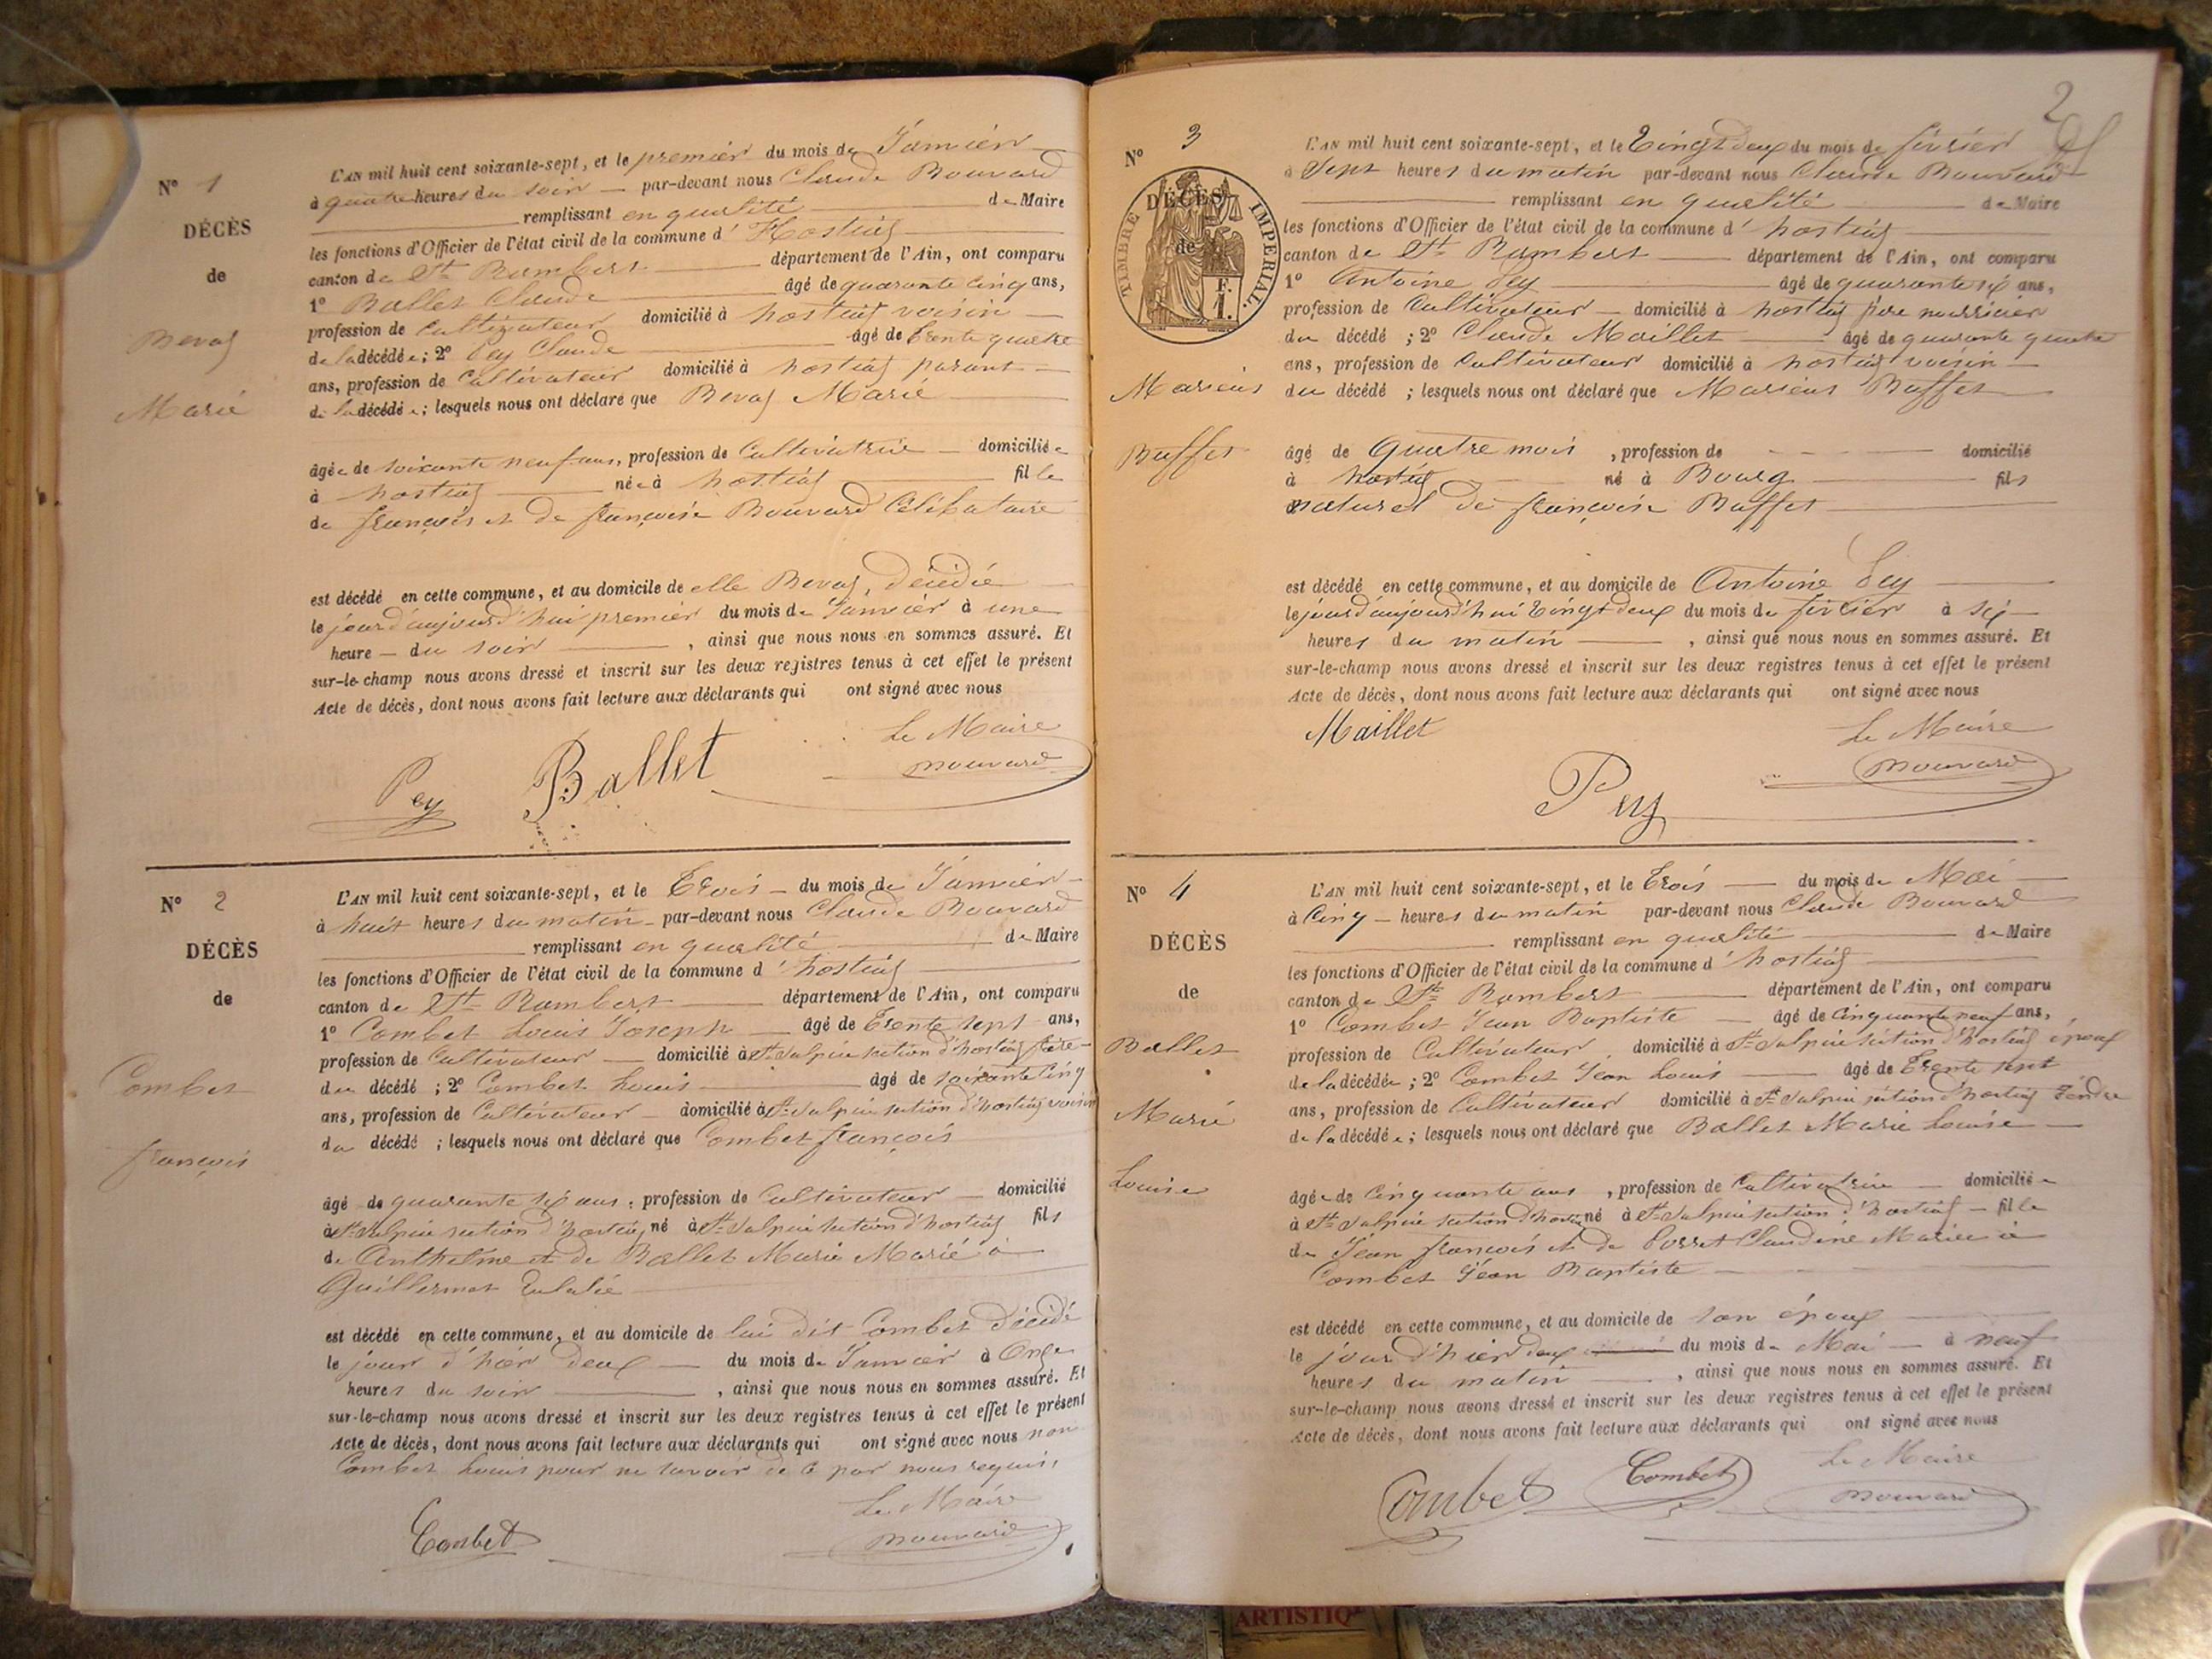 N° 1
DÉCÈS
de
Bevoz
Marie
L'AN mil huit cent soixante-sept, et le premier du mois de Janvier
à quatre heures du soir par-devant nous Claude Bouvard
remplissant en qualité de Maire
les fonctions d'Officier de l'état civil de la commune d' Hostiaz
canton de St Rambert département de l'Ain, ont comparu
1° Ballet Claude âgé de quarante cinq ans,
profession de Cultivateur domicilié à hostiaz voisin
de la décédée; 2° Pey Claude âgé de trente quatre
ans, profession de Cultivateur domicilié à hostiaz parant
de la décédée; lesquels nous ont déclaré que Bevoz Marie
âgée de soixante neuf ans, profession de Cultivatrice domiciliée
à hostiaz née à hostiaz fille
de françois et de françoise Bouvard Célibataire
est décédé en cette commune, et au domicile de elle Bevoz, décédée
le jour d'aujourd'hui premier du mois de Janvier à une
heure du soir, ainsi que nous nous en sommes assuré. Et
sur-le-champ nous avons dressé et inscrit sur les deux registres tenus à cet effet le présent
Acte de décès, dont nous avons fait lecture aux déclarants qui ont signé avec nous
Le Maire
Pey Ballet Bouvard
N° 2
DÉCÈS
de
Combet
françois
L'AN mil huit cent soixante-sept, et le trois du mois de Janvier
à huit heures du matin par-devant nous Claude Bouvard
remplissant en qualité de Maire
les fonctions d'Officier de l'état civil de la commune d' hostiaz
canton de St Rambert département de l'Ain, ont comparu
1° Combet Louis Joseph âgé de trente sept ans,
profession de Cultivateur domicilié à St Sulpice section d'hostiaz frère
du décédé; 2° Combet Louis âgé de soixante cinq
ans, profession de Cultivateur domicilié à St Sulpice section d'hostiaz voisin
du décédé; lesquels nous ont déclaré que Combet françois
âgé de quarante six ans, profession de Cultivateur domicilié
à St Sulpice section d'hostiaz né à St Sulpice section d'hostiaz fils
de Anthelme et de Ballet Marie Marié à
Guillermet Eulalie
est décédé en cette commune, et au domicile de lui dit Combet décédé
le jour d'hier deux du mois de Janvier à Onze
heures du soir, ainsi que nous nous en sommes assuré. Et
sur-le-champ nous avons dressé et inscrit sur les deux registres tenus à cet effet le présent
Acte de décès, dont nous avons fait lecture aux déclarants qui ont signé avec nous non
Combet Louis pour ne savoir de ce par nous requis,
Le Maire
Combet Bouvard
2
N° 3
TIMBRE IMPÉRIAL.
F.
1.
DÉCÈS
de
Marieus
Buffet
L'AN mil huit cent soixante-sept, et le vingt deux du mois de février
à Sept heures du matin par-devant nous Claude Bouvard
remplissant en qualité de Maire
les fonctions d'Officier de l'état civil de la commune d' hostiaz
canton de St Rambert département de l'Ain, ont comparu
1° Antoine Pey âgé de quarante six ans,
profession de Cultivateur domicilié à hostiaz père nourricier
du décédé; 2° Claude Maillet âgé de quarante quatre
ans, profession de Cultivateur domicilié à hostiaz voisin
du décédé; lesquels nous ont déclaré que Marieus Buffet
âgé de quatre mois, profession de domicilié
à hostiaz né à Bourg fils
naturel de françoise Buffet
est décédé en cette commune, et au domicile de Antoine Pey
le jour d'aujourd'hui vingt deux du mois de février à six
heures du matin, ainsi que nous nous en sommes assuré. Et
sur-le-champ nous avons dressé et inscrit sur les deux registres tenus à cet effet le présent
Acte de décès, dont nous avons fait lecture aux déclarants qui ont signé avec nous
Maillet Le Maire
Pey Bouvard
N° 4
DÉCÈS
de
Ballet
Marie
Louise
L'AN mil huit cent soixante-sept, et le trois du mois de Mai
à Cinq heures du matin par-devant nous Claude Bouvard
remplissant en qualité de Maire
les fonctions d'Officier de l'état civil de la commune d' hostiaz
canton de St Rambert département de l'Ain, ont comparu
1° Combet Jean Baptiste âgé de Cinquante neuf ans,
profession de Cultivateur domicilié à St Sulpice section d'hostiaz époux
de la décédée; 2° Combet Jean Louis âgé de trente sept
ans, profession de Cultivateur domicilié à St Sulpice section d'hostiaz Gendre
de la décédée; lesquels nous ont déclaré que Ballet Marie Louise
âgée de Cinquante ans, profession de Cultivatrice domiciliée
à St Sulpice section d'hostiaz né à St Sulpice section d'hostiaz fille
de Jean françois et de Claudine Mariée à
Combet Jean Baptiste
est décédé en cette commune, et au domicile de son époux
le jour d'hier deux du mois de Mai à neuf
heures du matin, ainsi que nous nous en sommes assuré. Et
sur-le-champ nous avons dressé et inscrit sur les deux registres tenus à cet effet le présent
Acte de décès, dont nous avons fait lecture aux déclarants qui ont signé avec nous
Combet Combet Le Maire
Bouvard
ARTISTIQ